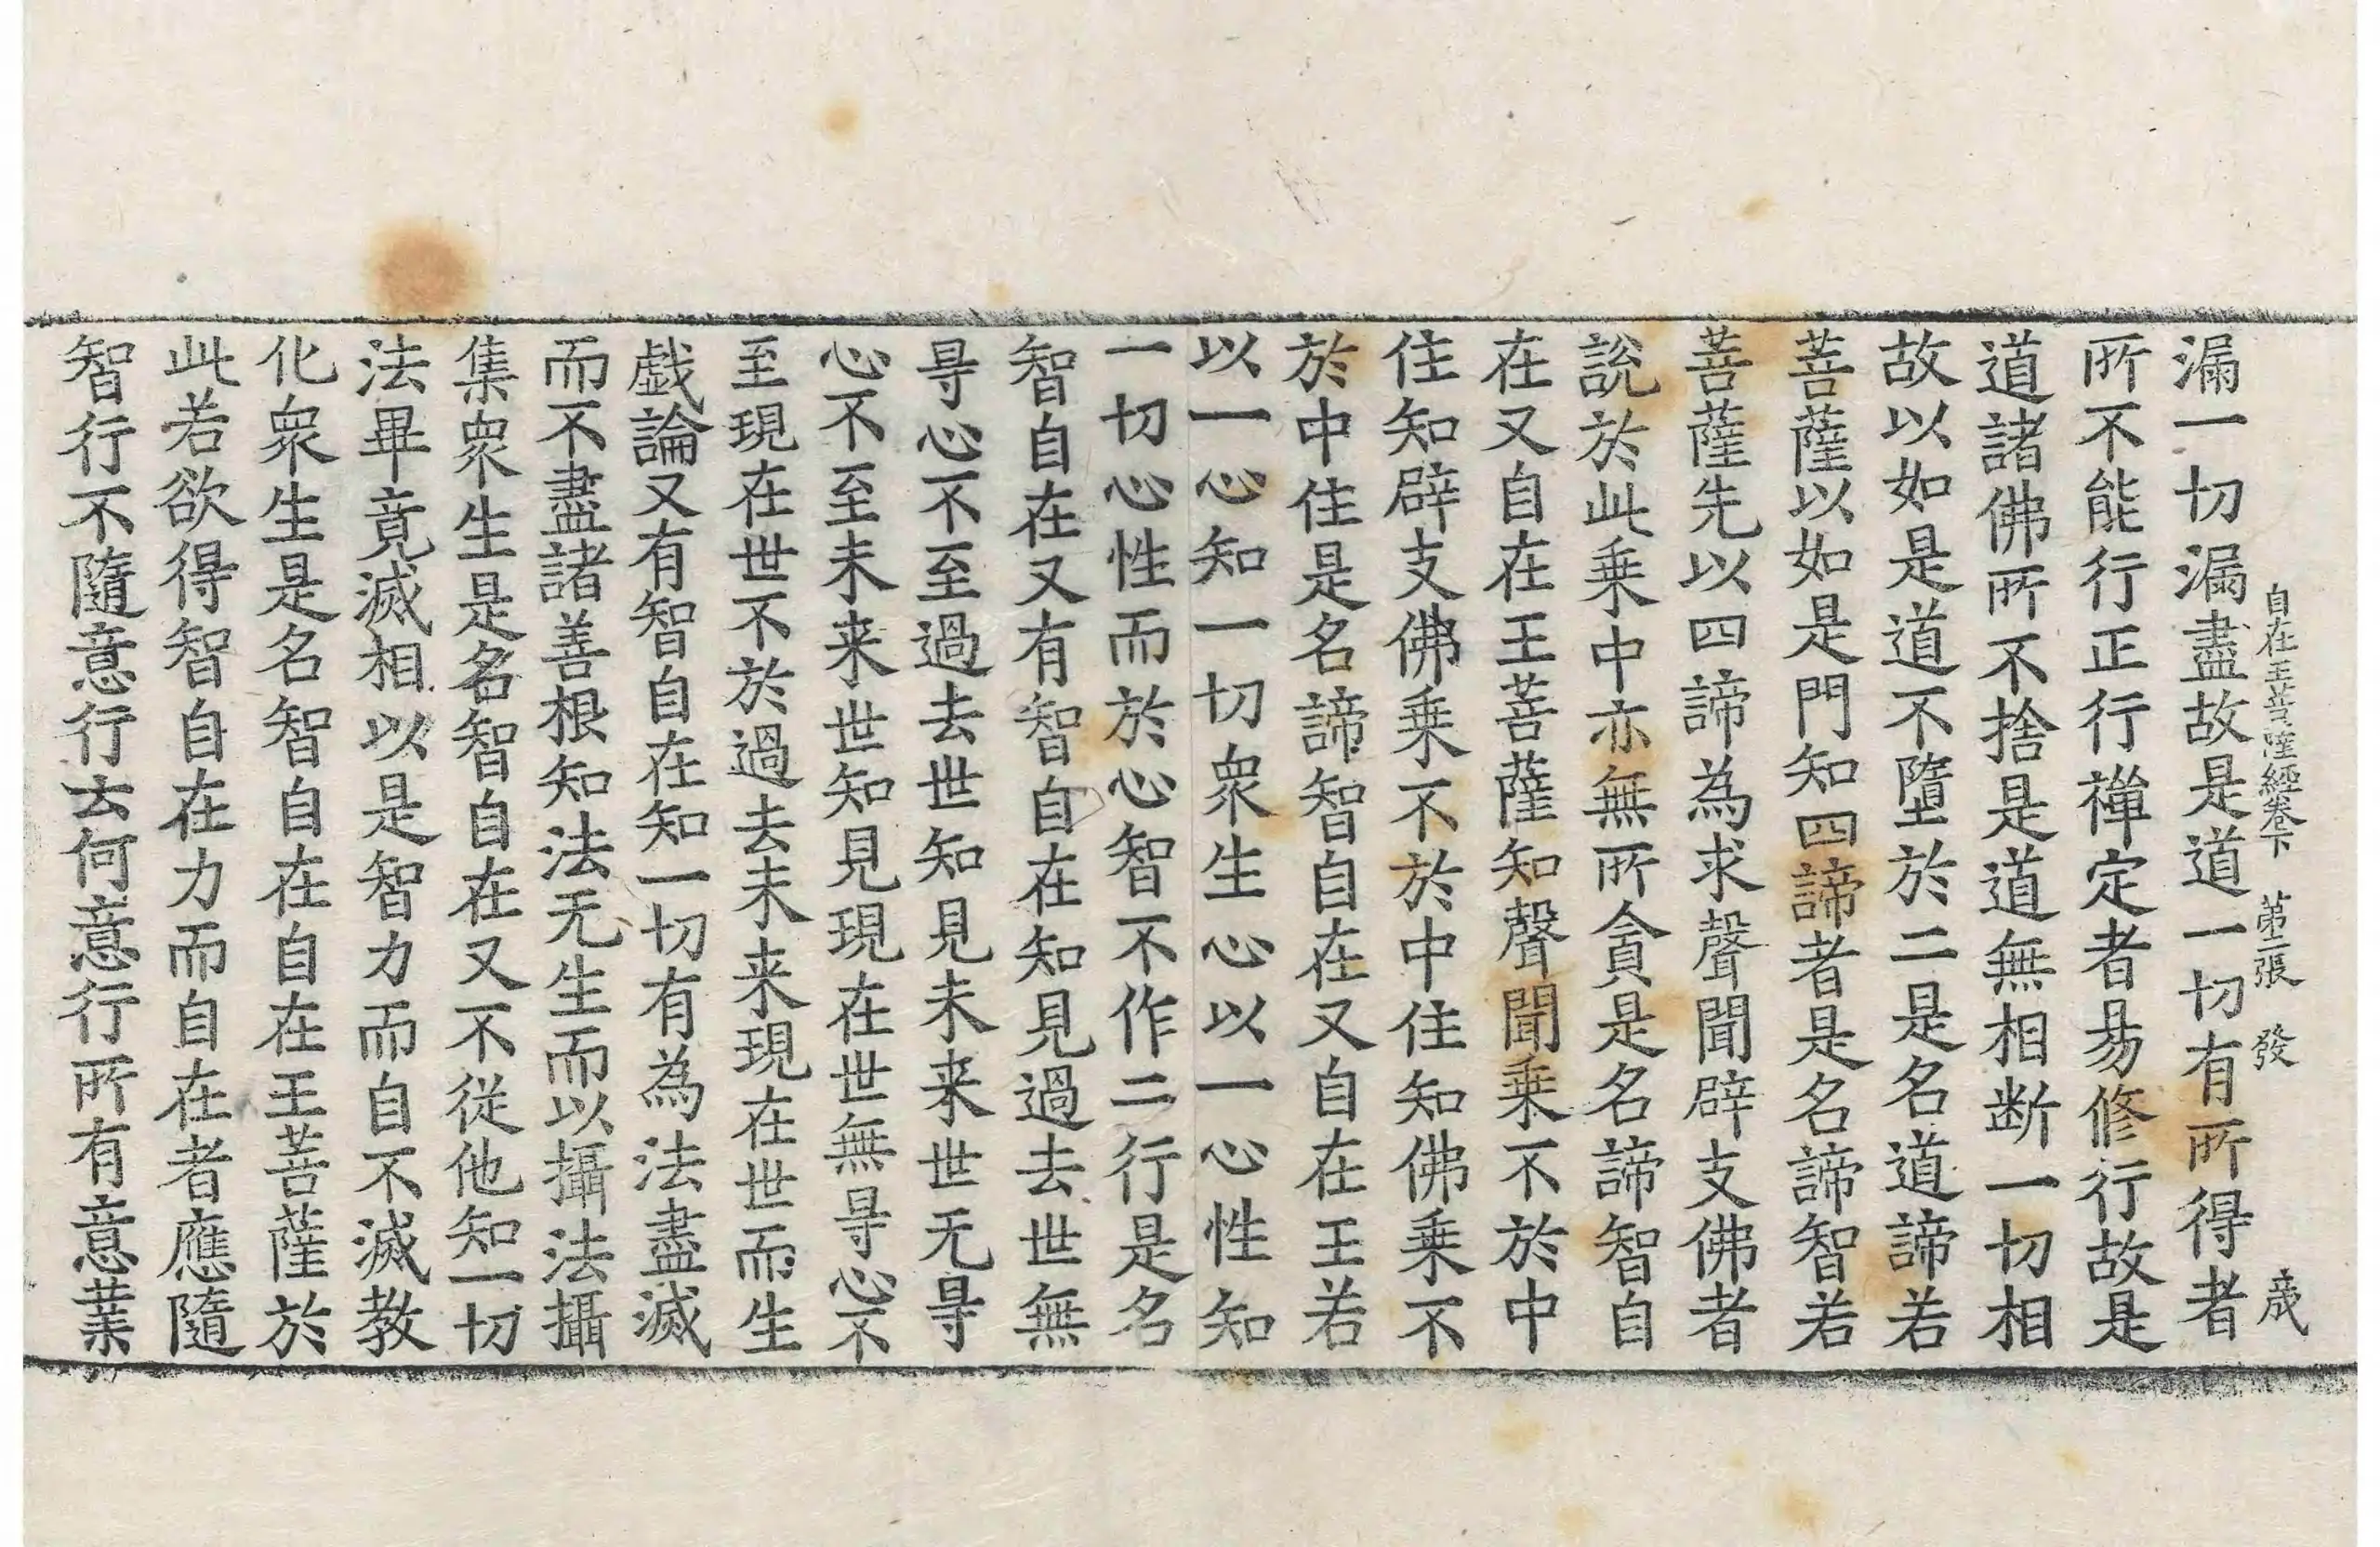 自在王菩薩經卷下 第二張 發
漏一切漏盡故是道一切有所得者
所不能行正行禪定者易修行故是
道諸佛所不捨是道無相断一切相
故以如是道不墮於二是名道諦若
菩薩以如是門知四諦者是名諦智若
菩薩先以四諦為求聲聞辟支佛者
說於此乗中亦無所貪是名諦智自
在又自在王菩薩知聲聞乗不於中
住知辟支佛乗不於中住知佛乗不
於中住是名諦智自在又自在王若
以一心知一切衆生心以一心性知
一切心性而於心智不作二行是名
智自在又有智自在知見過去世無
㝵心不至過去世知見未来世无㝵
心不至未来世知見現在世無㝵心不
至現在世不於過去未来現在世而生
戯論又有智自在知一切有為法盡滅
而不盡諸善根知法无生而以攝法攝
集衆生是名智自在又不從他知一切
法畢竟滅相以是智力而自不滅教
化衆生是名智自在自在王菩薩於
此若欲得智自在力而自在者應隨
智行不隨意行去何意行所有意業